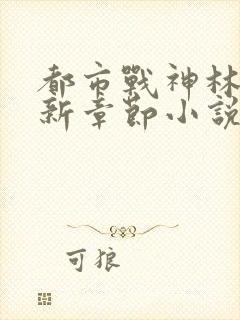 都市戰神林
新章節小說
可狼